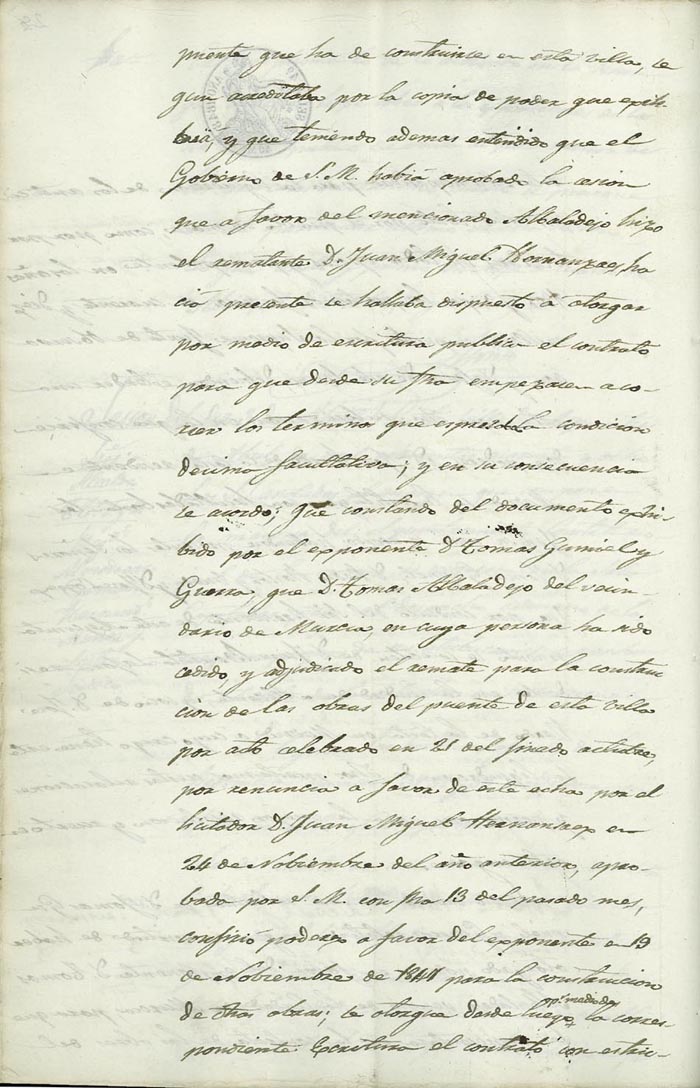 puente que ha de construirse en esta villa, se
gun acreditaba por la copia de poder que exhi-
bia, y que teniendo ademas entendido que el
Gobierno de S. M. habia aprobado la cesion
que a favor del mencionado Albaladejo hizo
el rematante D. Juan Miguel Hernansaez, ha
cia presente se hallaba dispuesto á otorgar
por medio de escritura publica el contrato
para que desde su fha empezasen a co-
rrer los terminos que espresa la condicion
decima facultativa; y en su consecuencia
se acordo; Que constando del documento exhi-
bido por el exponente D. Tomas Gumiel y
Guerra, que D. Tomas Albaladejo del vecin-
dario de Murcia, en cuya persona ha sido
cedido, y adjudicado el remate para la construc
cion de las obras del puente de esta villa
por acto celebrado en 21 del
por renuncia a favor de este echa por el
licitador D. Juan Miguel Hernansaez en
24 de Noviembre del año anterior, apro-
bada por S. M. con fha 13 del pasado mes,
confirió poderes a favor del exponente en 19
de Noviembre de 1841 para la construccion
de dhas obras; se otorgue desde luego pr. medio de la corres-
pondiente Escritura el contrato con estric-